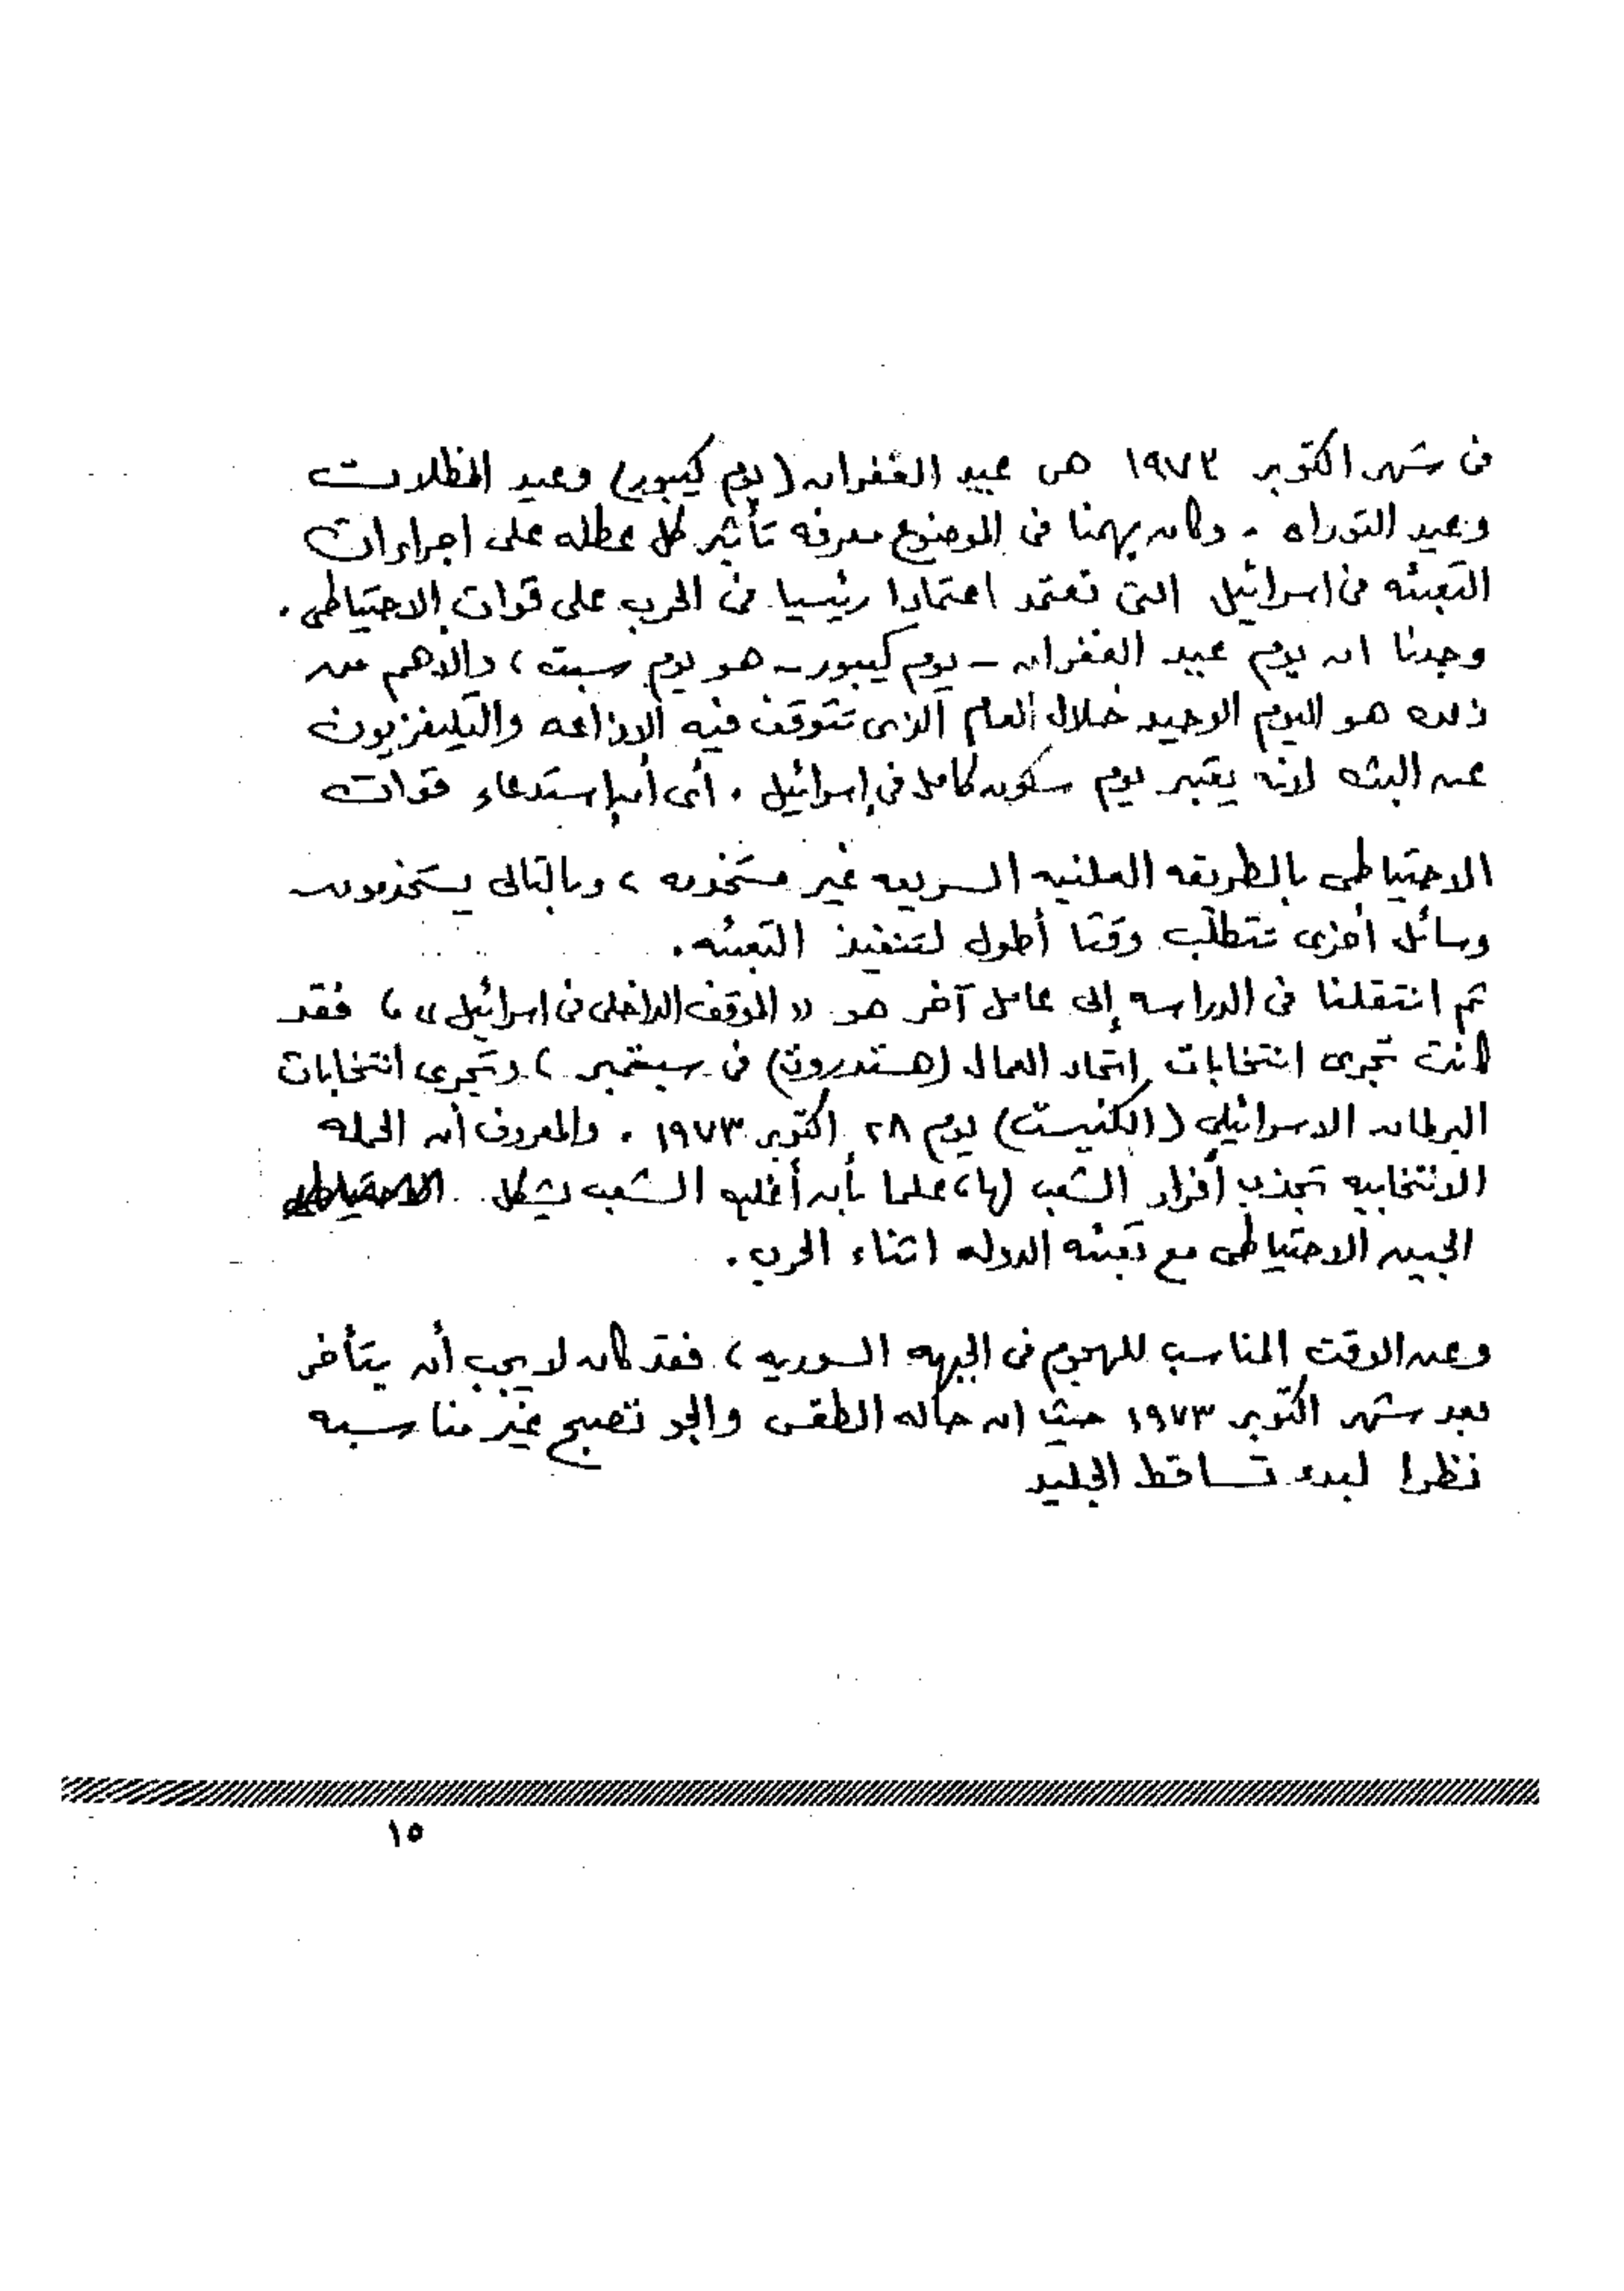 فى شهر اكتوبر ١٩٧٣ هى عيد الغفران (يوم كيبور) وعيد المظلات
وعيد التوراه . وكان يهمنا فى الموضوع معرفه تأثير كل عطله على اجراءات
التعبئه فى اسرائيل التى تعتمد اعتمادا رئيسيا فى الحرب على قوات الاحتياطى .
وجدنا ان يوم عيد الغفران - يوم كيبور - هو يوم سبت ، والاهم من
ذلك هو اليوم الوحيد خلال العام الذى تتوقف فيه الاذاعه والتليفزيون
عن البث لانه يعتبر يوم سكون كامل فى إسرائيل . أى أن إستدعاء قوات
الاحتياطى بالطريقه العلنيه السريعه غير مستخدمه ، وبالتالى يستخدمون
وسائل أخرى تتطلب وقتا أطول لتنفيذ التعبئه .
ثم انتقلنا فى الدراسه إلى عامل آخر هو « الموقف الداخلى فى اسرائيل » ، فقد
كانت تجرى انتخابات اتحاد العمال (هستدروت) فى سبتمبر ، وتجرى انتخابات
البرلمان الاسرائيلي (الكنيست) يوم ٢٨ اكتوبر ١٩٧٣ . والمعروف أن الحمله
الانتخابيه تجذب أفراد الشعب لها ، علما بأن أغلبه الشعب يشكل الاحتياطى
الجيش الاحتياطى مع تعبئه الدوله اثناء الحرب .
وعن الوقت المناسب للهجوم فى الجبهه السوريه ، فقد كان لا يجب أن يتأخر
بعد شهر اكتوبر ١٩٧٣ حيث ان حاله الطقس والجو تصبح غير مناسبه
نظرا لبدء تساقط الجليد
١٥